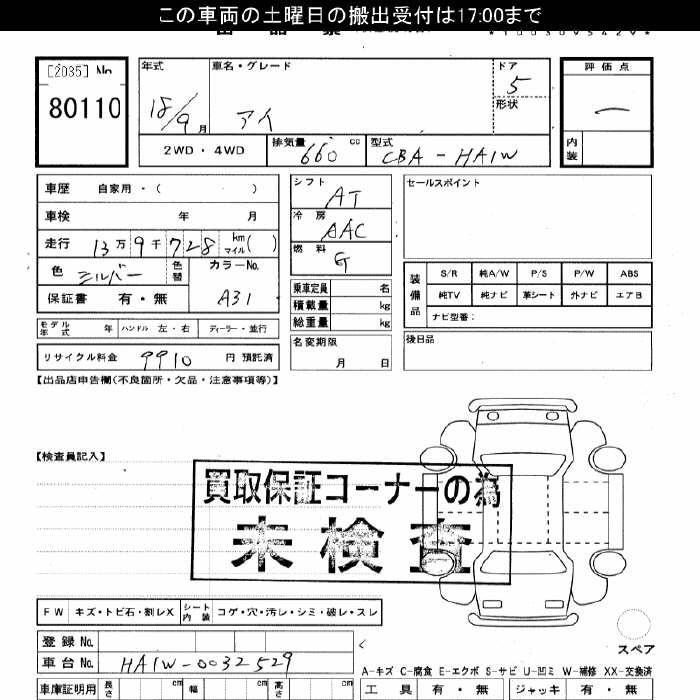 この車両の土曜日の搬出受付は17:00まで
[2035] No
80110
年式
18/9 月
車名・グレード
アイ
ドア
5
形状
評価点
—
内装
2WD・4WD
排気量 660 cc
型式 CBA-HA1W
車歴 自家用・( )
車検 年 月
走行 13万9千728 km マイル ( )
色 シルバー 色替
カラーNo. A31
保証書 有・無
モデル年式 年 ハンドル 左・右 ディーラー・並行
リサイクル料金 9910 円 預託済
シフト AT
冷房 AAC
燃料 G
乗車定員 名
積載量 kg
総重量 kg
名変期限 月 日
セールスポイント
装備品
S/R 純A/W P/S P/W ABS
純TV 純ナビ 革シート 外ナビ エアB
ナビ型番:
後日品
【出品店申告欄(不良箇所・欠品・注意事項等)】
【検査員記入】
買取保証コーナーの為
未検査
FW キズ・トビ石・割レX シート内装 コゲ・穴・汚レ・シミ・破レ・スレ
登録No.
車台No. HA1W-0032529
スペア
A-キズ C-腐食 E-エクボ S-サビ U-凹ミ W-補修 XX-交換済
車庫証明用 長さ cm 幅 cm 高さ cm
工具 有・無 ジャッキ 有・無